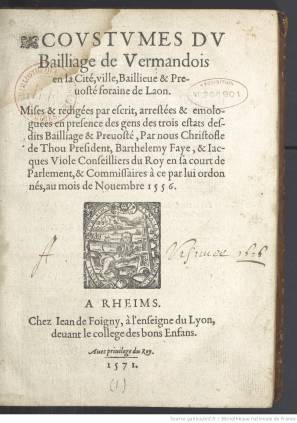 COVSTVMES DV
Bailliage de Vermandois
en la Cité, ville, Baillieuë & Pre-
uosté foraine de Laon.
Mises & redigées par escrit, arrestées & emolo-
guées en presence des gens des trois estats des-
dits Bailliage & Preuosté, Par nous Christofle
de Thou President, Barthelemy Faye, & Iac-
ques Viole Conseilliers du Roy en sa court de
Parlement, & Commissaires à ce par lui ordon
nés, au mois de Nouembre 1556.
A RHEIMS.
Chez Iean de Foigny, à l'enseigne du Lyon,
deuant le college des bons Enfans.
Auec priuilege du Roy.
1571.
(1)
Source gallica.bnf.fr / Bibliothèque nationale de France